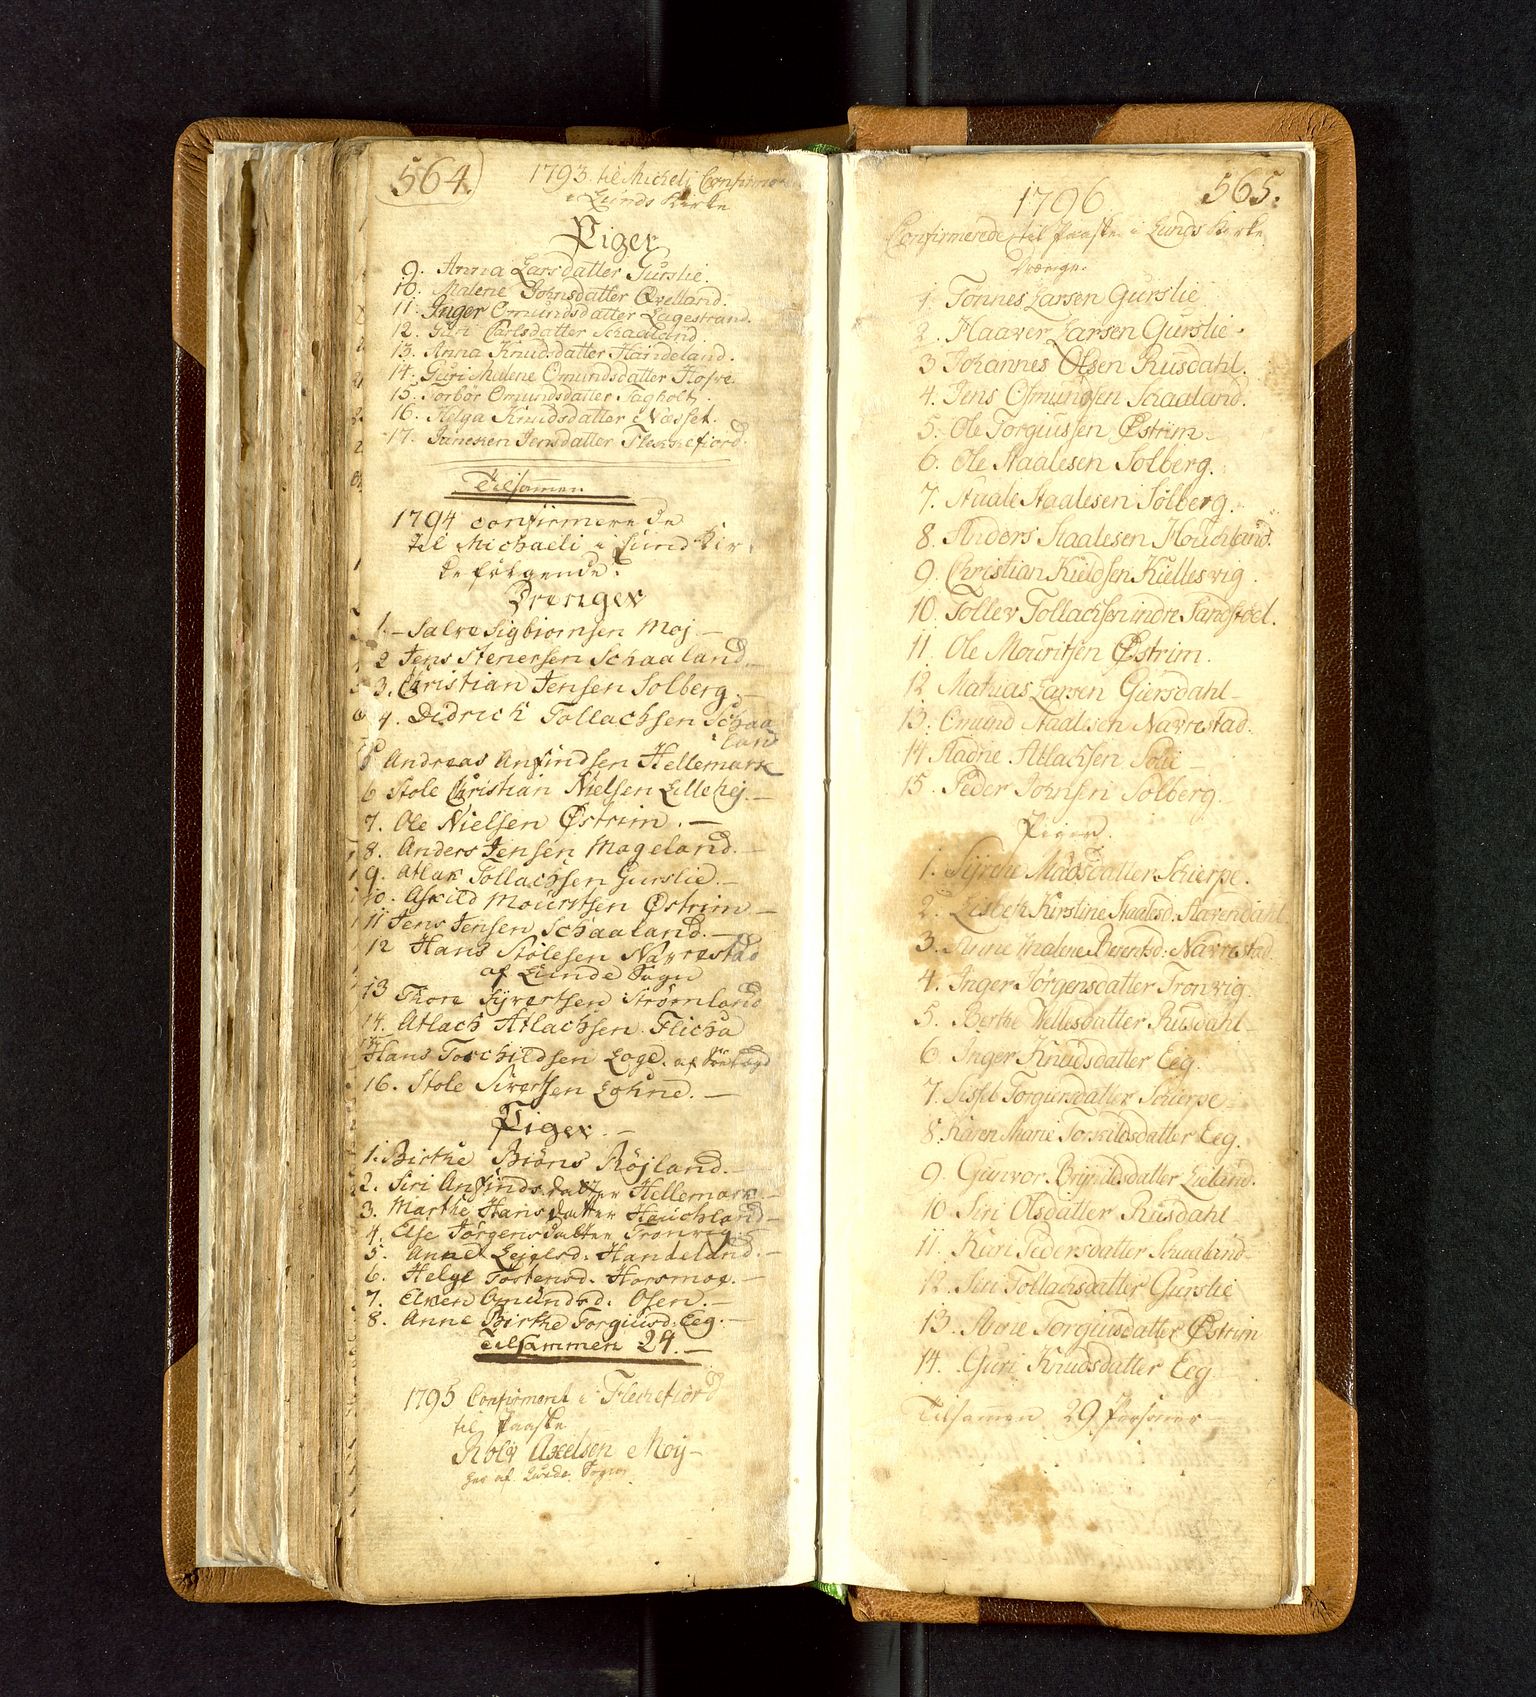 564.
1793. til Micheli Confirmer
i Lunds Kirke
Piger
9. Anna Larsdatter Gurslie.
10. Malene Johnsdatter Qvelland.
11. Inger Omundsdatter Eagestrand.
12. Guri Carlsdatter Schaaland.
13. Anna Knudsdatter Handeland.
14. Guri Malene Omundsdatter Hofve.
15. Torbör Omundsdatter Fagholt.
16. Helga Knudsdatter Næsset.
17. Janeken Jensdatter Flekkefiord.
Tilsamen
1794 confirmerede
til Michaeli i Lund Kir-
ke følgende:
Drenger
1. Salve Sigbiornsen Moj.
2 Jens Stenersen Schaaland.
3. Christian Jensen Solberg.
4. Didrich Tollachsen Schaa
land
5 Andreas Anfindsen Hellemark
6 Stole Christian Nielsen Lillehej.
7. Ole Nielsen Østrim.
8. Anders Jensen Mageland.
9. Atlak Tollachsen Gurslie.
10. Askild Mouritsen Østrim
11 Jens Jensen Schaaland.
12 Hans Stolesen Navrestad
af Lunde Sogn
13 Thore Syvertsen Strømland
14. Atlach Atlachsen Flicha
Hans Torchildsen Loge. af
16. Stole Sivertsen Eghne.
Piger.
1. Birthe Biørns Röjland.
2. Siri Anfindsdatter Hellemark
3. Marthe Hansdatter Hauchland
4. Else Jørgensdatter Tronvig
5. Anne Lejelsd. Handeland.
6. Helge Tostensd. Horsmoe.
7. Elken Omundsd. Osen.
8. Anne Birthe Torgiusd. Eeg.
Tilsammen 24.
1795 Confirmeret i Flekefiord
til Paaske
Rolf Axelsen Moij
her af Lunde Sogn
565.
1796
Confirmerede til Paaske i Lunds Kirke
Drenge.
1. Tønnes Larsen Gurslie
2. Haaver Larsen Gurslie
3 Johannes Olsen Rusdahl.
4. Jens Osmundsen Schaaland.
5. Ole Torgiussen Østrim
6. Ole Staalesen Solberg.
7. Staale Staalesen Solberg.
8. Anders Staalesen Houchland.
9. Christian Kieldsen Kiellesvig.
10. Tollev Tollachsen indre Sandstöel.
11. Ole Mouritsen Østrim.
12 Mathias Larsen Giersdahl
13. Omund Staalesen Navrestad.
14 Aadne Atlachsen Polie
15. Peder Johnsen Solberg.
Piger.
1. Syrene Madsdatter Schierpe.
2. Lisbeth Kirstine Staalesd. Aavendahl
3. Anne Malene Berentsd. Navrestad.
4. Inger Jörgensdatter Tronvig
5. Berthe Wellesdatter Rusdahl
6. Inger Knudsdatter Eeg.
7. Sissel Torgiersdatter Schierpe
8. Karen Marie Torkildsdatter Eeg.
9. Gunvor Brynildsdatter Eieland.
10. Siri Olsdatter Rusdahl
11. Kari Pedersdatter Schaaland
12. Siri Tollachsdatter Gurslie
13. Anne Torgiusdatter Østrim
14. Guri Knudsdatter Eeg
Tilsamen 29 Personer